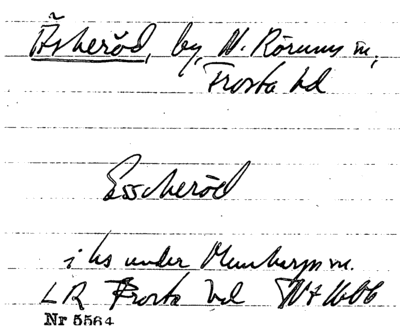 Åsheröd, by, N. Rörums sn,
Frosta hd
Esseheröd
i hs under
LR Frosta hd
Nr 5564